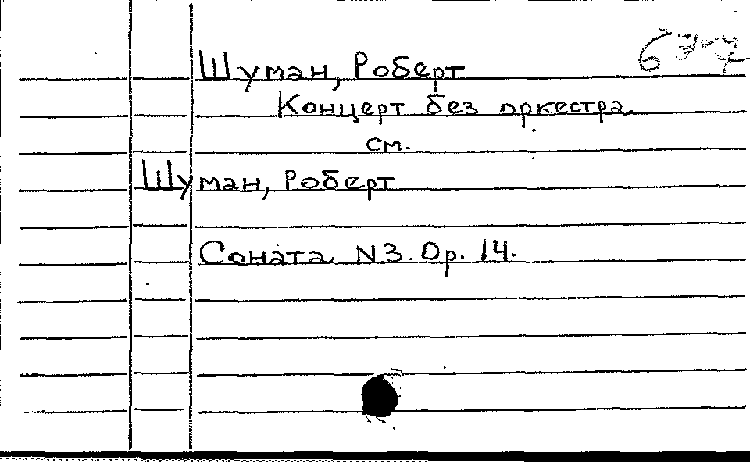 Шуман, Роберт
Концерт без оркестра
см.
Шуман, Роберт
Соната. N3. Op. 14.